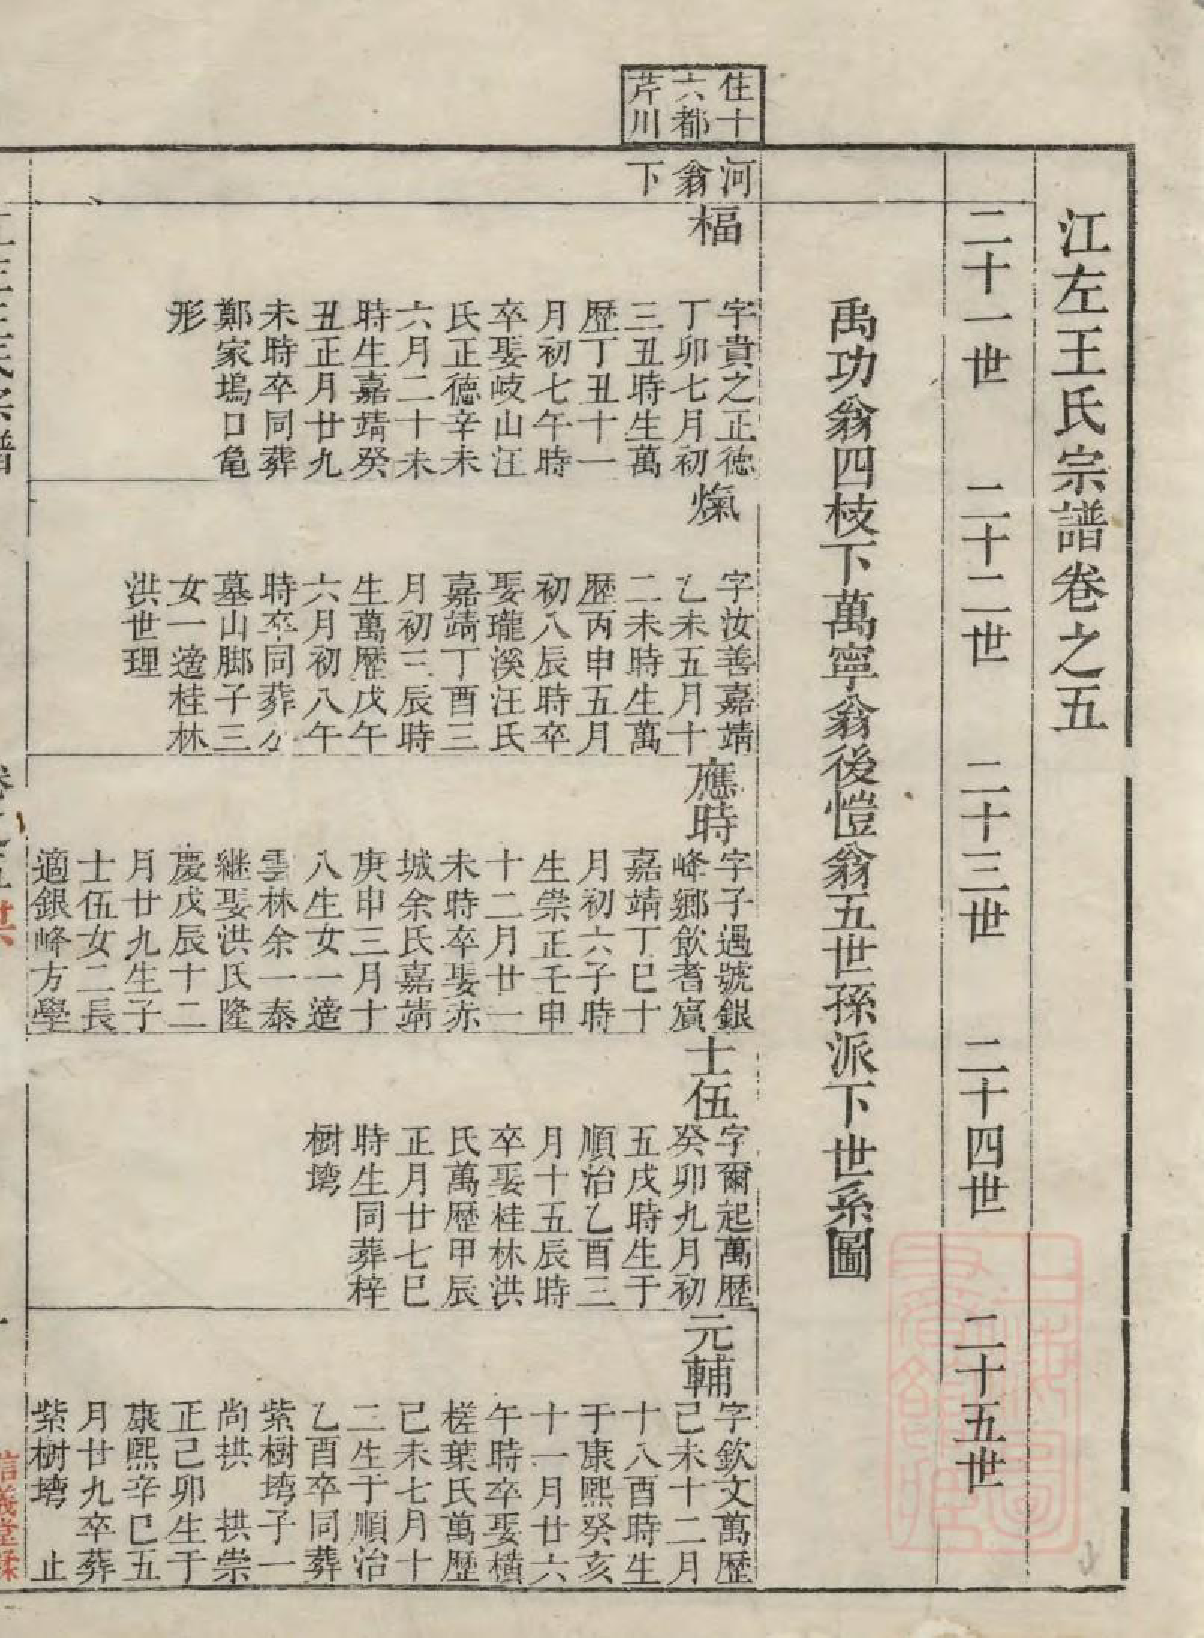 江左王氏宗譜卷之五
二十一世
二十二世
二十三世
二十四世
二十五世
禹功翁四枝下萬寧翁後愷翁五世孫派下世系圖
住十
六都
芹川
河
翁
下
楅
字貴之正德
丁卯七月初
三丑時生萬
歷丁丑十一
月初七午時
卒娶岐山汪
氏正德辛未
六月二十未
時生嘉靖癸
丑正月廿九
未時卒同葬
鄭家塢口亀
形
㷩
字汝善嘉靖
乙未五月十
二未時生萬
歷丙申五月
初八辰時卒
娶瓏溪汪氏
嘉靖丁酉三
月初三辰時
生萬歷戊午
六月初八午
時卒同葬公
墓山脚子三
女一適桂林
洪世理
應時
字子遇號銀
峰鄉飲耆賔
嘉靖丁巳十
月初六子時
生崇正壬申
十二月廿一
未時卒娶赤
城余氏嘉靖
庚申三月十
八生女一適
雲林余一泰
継娶洪氏隆
慶戊辰十二
月廿九生子
士伍女二長
適銀峰方學
士伍
字爾起萬歷
癸卯九月初
五戌時生于
順治乙酉三
月十五辰時
卒娶桂林洪
氏萬歷甲辰
正月廿七巳
時生同葬梓
樹塆
元輔
字欽文萬歷
己未十二月
十八酉時生
于康熙癸亥
十一月廿六
午時卒娶橫
槎葉氏萬歷
己未七月十
二生于順治
乙酉卒同葬
紫樹塆子一
尚拱 拱崇
正己卯生于
康熙辛巳五
月廿九卒葬
紫樹塆 止
江左王氏宗譜
卷之五
信義堂梓